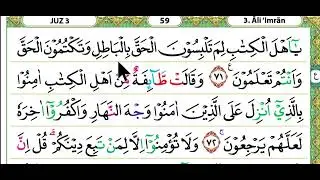 JUZ 3 59 3. Āli 'Imrān
يٰٓاَهْلَ الْكِتٰبِ لِمَ تَلْبِسُوْنَ الْحَقَّ بِالْبَاطِلِ وَتَكْتُمُوْنَ الْحَقَّ
وَاَنْتُمْ تَعْلَمُوْنَ ࣖ ﴿٧١﴾ وَقَالَتْ طَّاۤىِٕفَةٌ مِّنْ اَهْلِ الْكِتٰبِ اٰمِنُوْا
بِالَّذِيْٓ اُنْزِلَ عَلَى الَّذِيْنَ اٰمَنُوْا وَجْهَ النَّهَارِ وَاكْفُرُوْٓا اٰخِرَهٗ
لَعَلَّهُمْ يَرْجِعُوْنَ ﴿٧٢﴾ وَلَا تُؤْمِنُوْٓا اِلَّا لِمَنْ تَبِعَ دِيْنَكُمْ ۗ قُلْ اِنَّ